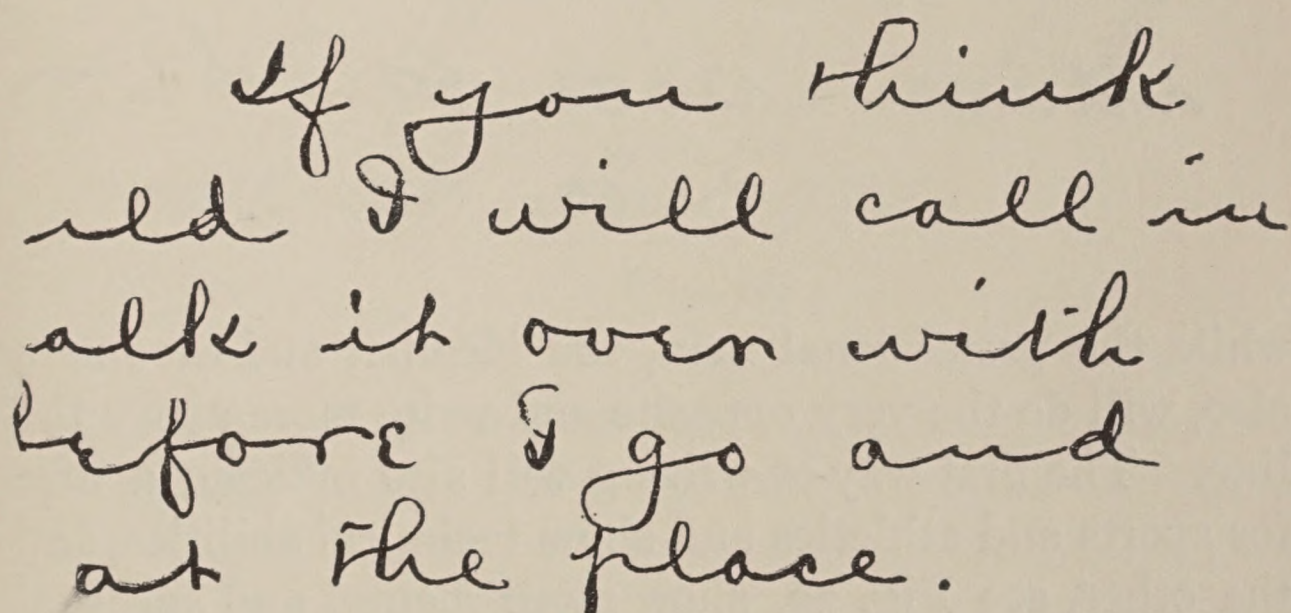 If you think
uld I will call in
alk it over with
before I go and
at the place.